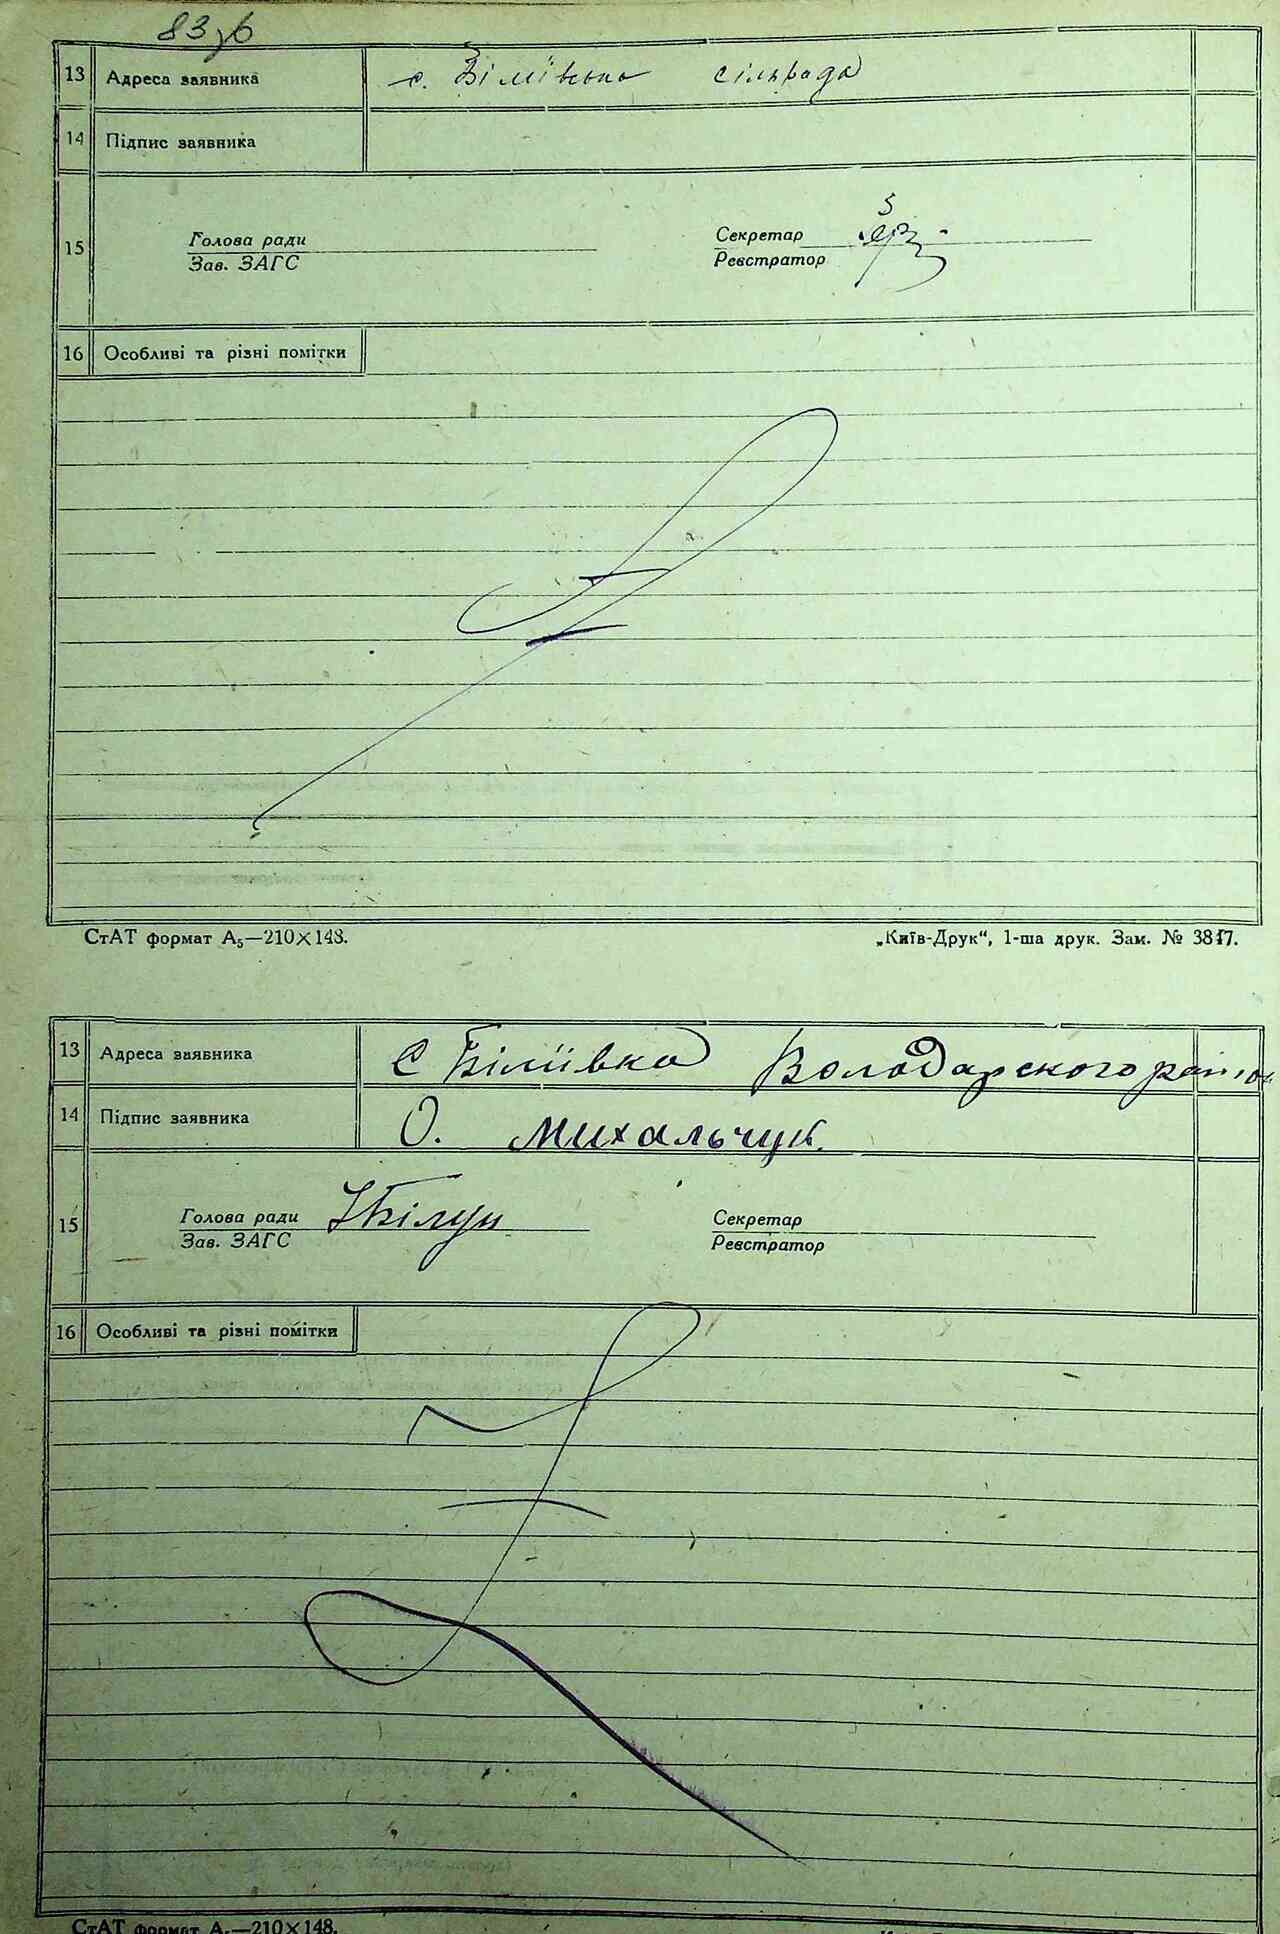 83зв
13 Адреса заявника с. Біліївська сільрада
14 Підпис заявника
15 Голова ради Секретар
Зав. ЗАГС Реєстратор
16 Особливі та різні помітки
СтАТ формат А₅—210×148. „Київ-Друк“, 1-ша друк. Зам. № 3817.
13 Адреса заявника С Біліївка Володарского району
14 Підпис заявника О. Михальчук.
15 Голова ради Білун Секретар
Зав. ЗАГС Реєстратор
16 Особливі та різні помітки
СтАТ формат А₅—210×148.